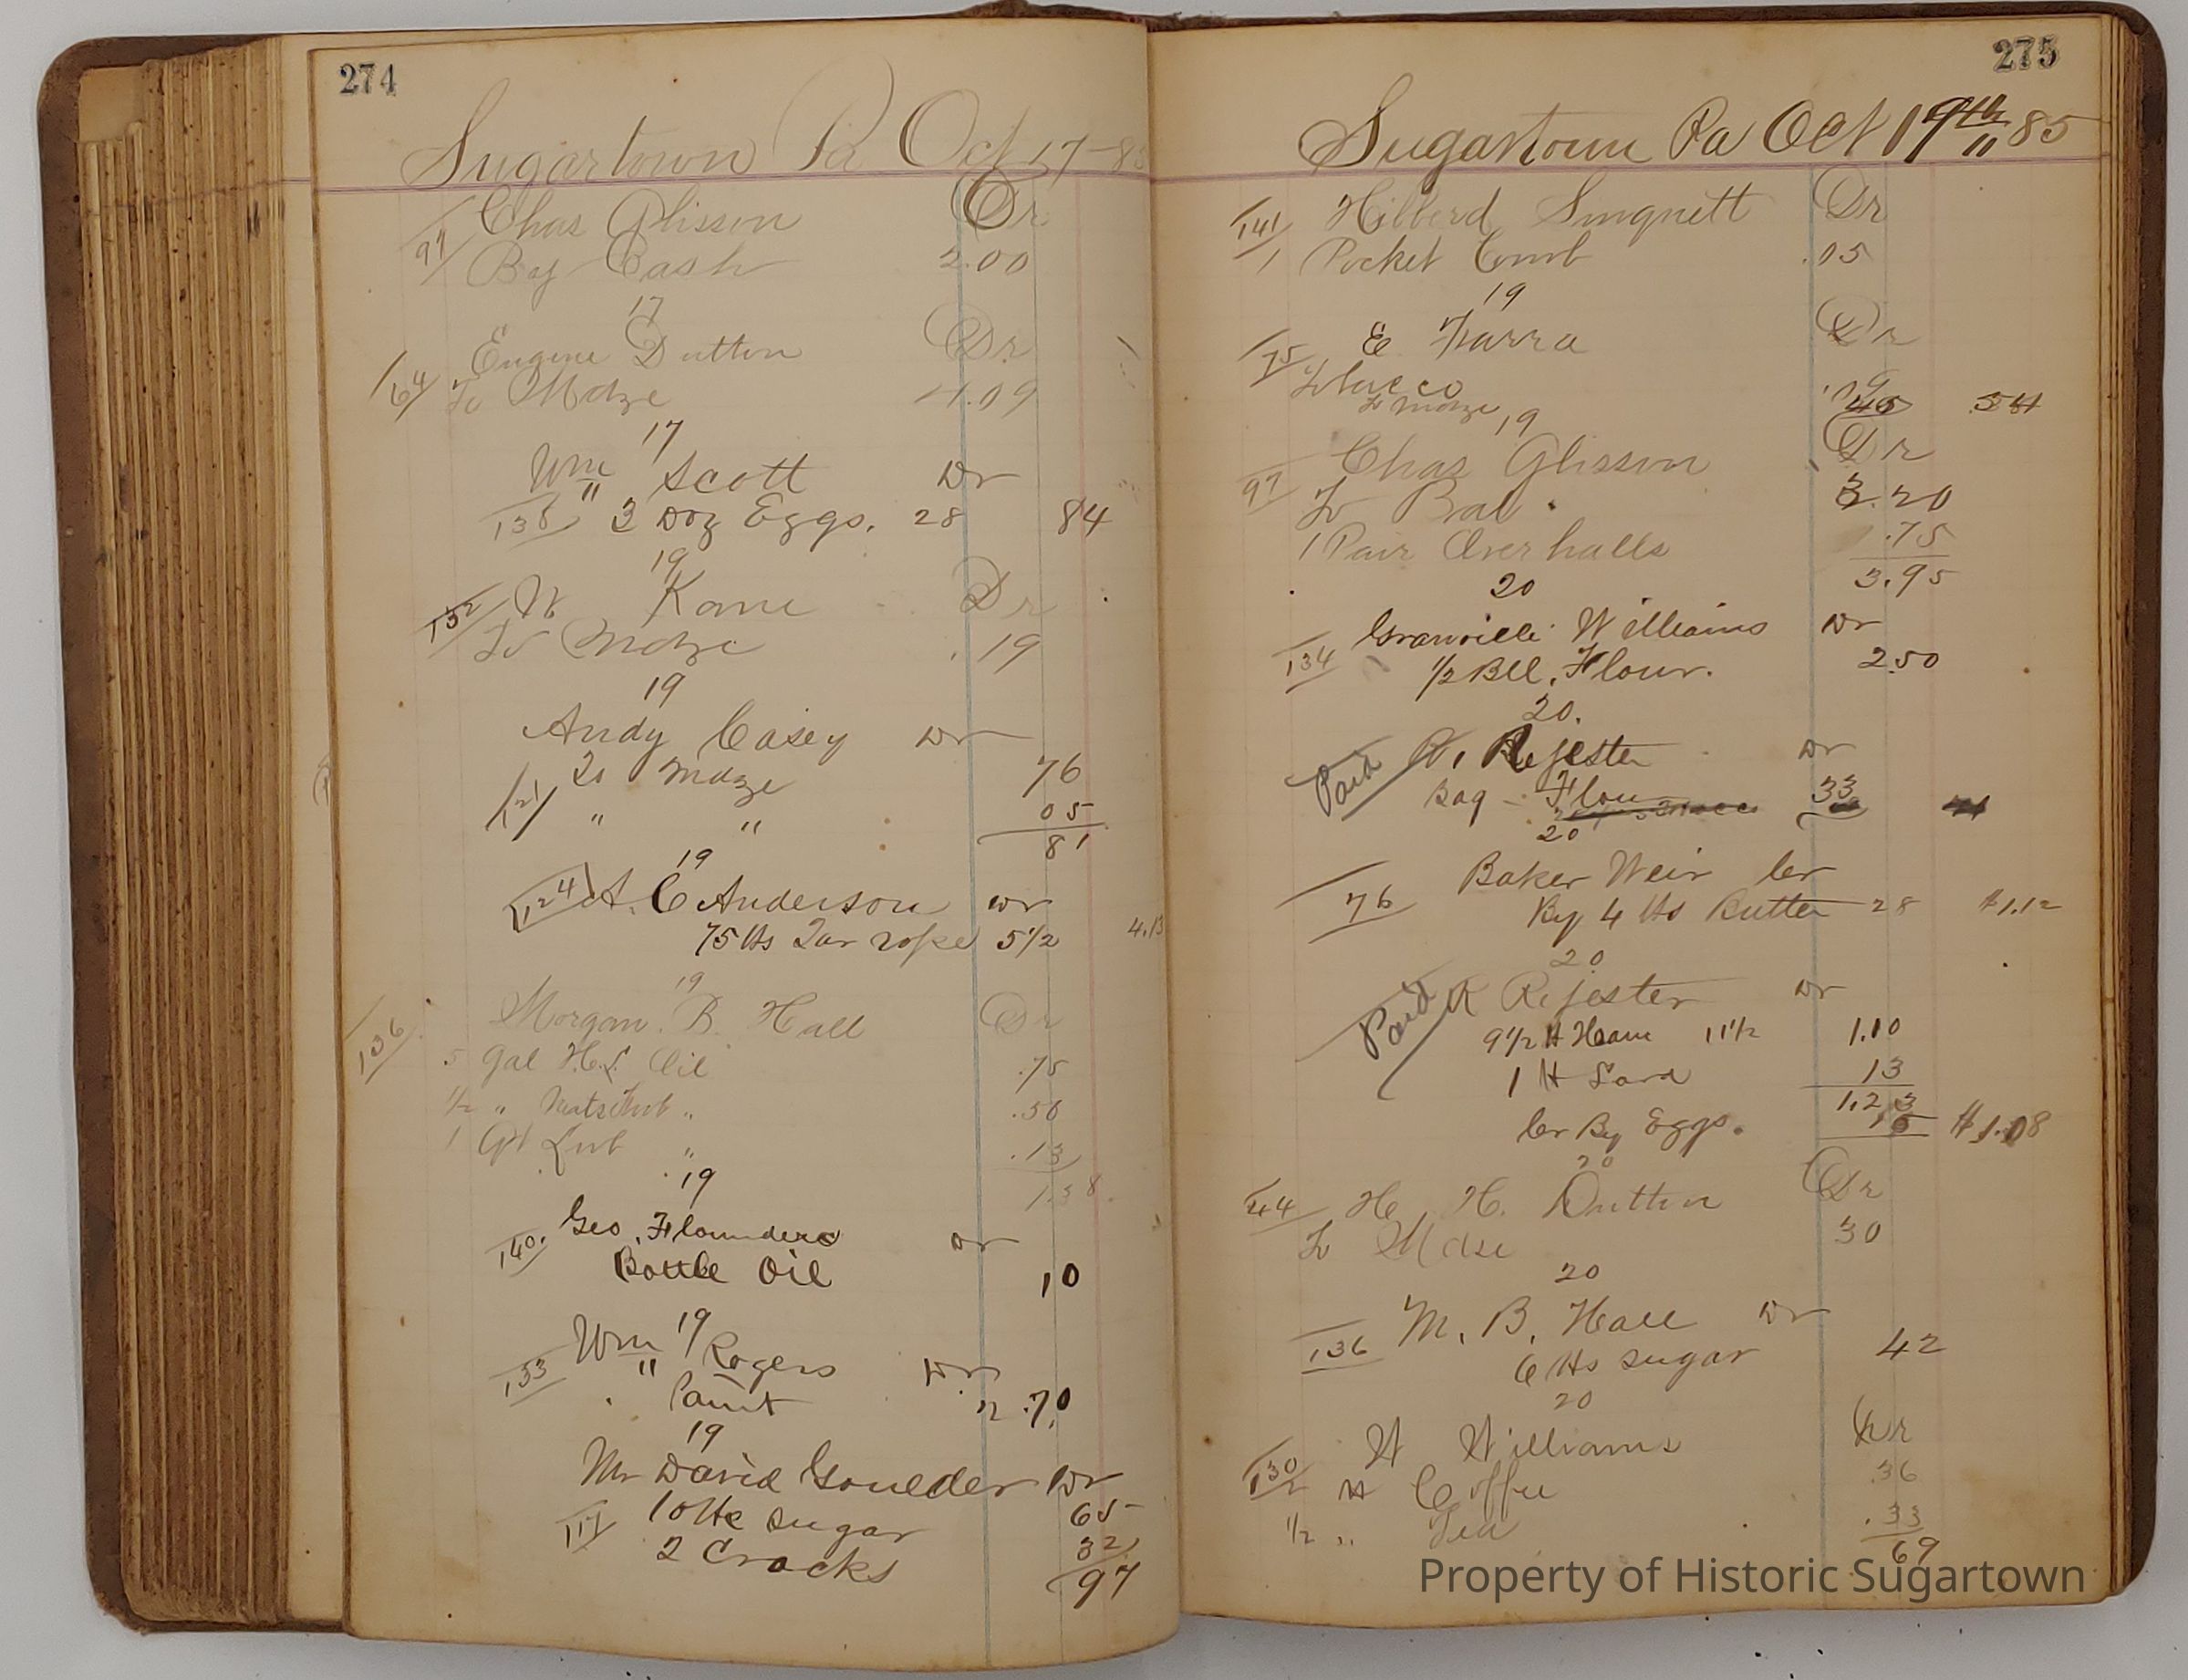 274
Sugartown Pa Oct 17-85
97 Chas Glisson Dr
By Cash 2.00
17
Eugene Dutton Dr
64 To Mdze 4.09
17
Wm Scott Dr
138 " 3 Doz Eggs. 28 84
19
132 W Kane Dr
To Mdze .19
19
Andy Casey Dr
To Mdze 76
121 " " 05
81
19
124 A. C Anderson Dr
75 lbs Tar rope 5 1/2 4.13
19
136 Morgan. B. Hall Dr
5 Gal H.L. Oil .75
1/2 " " .50
1 Qt Lub " .13
19
1.38
140. Geo. Flounders Dr
Bottle Oil 10
19
Wm Rogers Dr
133 " Paint 2.70
19
Mr David Goulder Dr
117 10 lbs sugar 65
2 Crocks 32
97
275
Sugartown Pa Oct 19th 85
141 Hibberd Dr
1 Pocket Comb .15
19
75 E Farra Dr
Tobacco .09
To Mdze 45 54
19
Chas Glisson Dr
97 To Bal 3.20
1 Pair Overhalls .75
3.95
20
Granville Williams Dr
134 1/2 Bbl. Flour. 2.50
20.
Paid R. Rejester Dr
Bag - Flou 33
20
Baker Weir Cr
76 By 4 lbs Butter 28 $1.12
20
Paid R Rejester Dr
9 1/2 lb Ham 11 1/2 1.10
1 lb Lard 13
1.23
Cr By Eggs. 15 $1.08
20
44 H. H. Dutton Dr
To Mdse 30
20
M. B. Hall Dr
136 6 lbs sugar 42
20
130 W Williams Dr
1/2 lb Coffee .36
1/2 " Tea .33
69
Property of Historic Sugartown